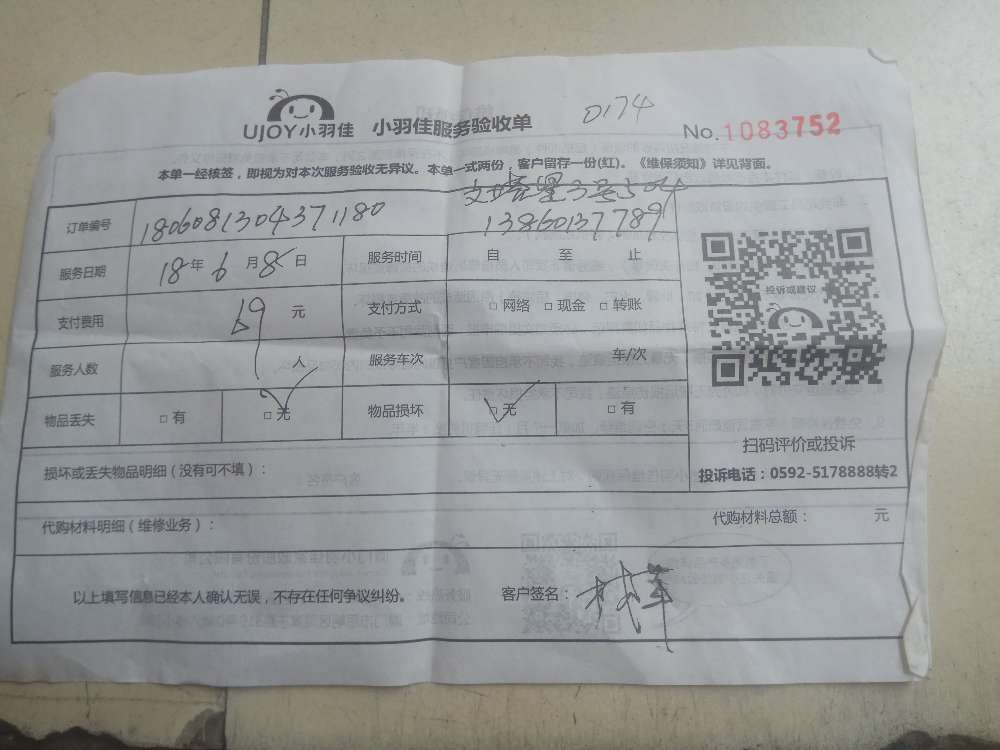 UJOY小羽佳 小羽佳服务验收单
0174
No. 1083752
本单一经核签，即视为对本次服务验收无异议。本单一式两份，客户留存一份(红)。《维保须知》详见背面。
3号504
订单编号 1806081304371180 13860137789
服务日期 18年6月8日 服务时间 自 至 止
支付费用 69元 支付方式 □网络 □现金 □转账
服务人数 人 服务车次 车/次
物品丢失 □有 □无 ✓ 物品损坏 □无 ✓ □有
投诉或建议
扫码评价或投诉
投诉电话：0592-5178888转2
损坏或丢失物品明细（没有可不填）：
代购材料明细（维修业务）： 代购材料总额： 元
以上填写信息已经本人确认无误，不存在任何争议纠纷。 客户签名：